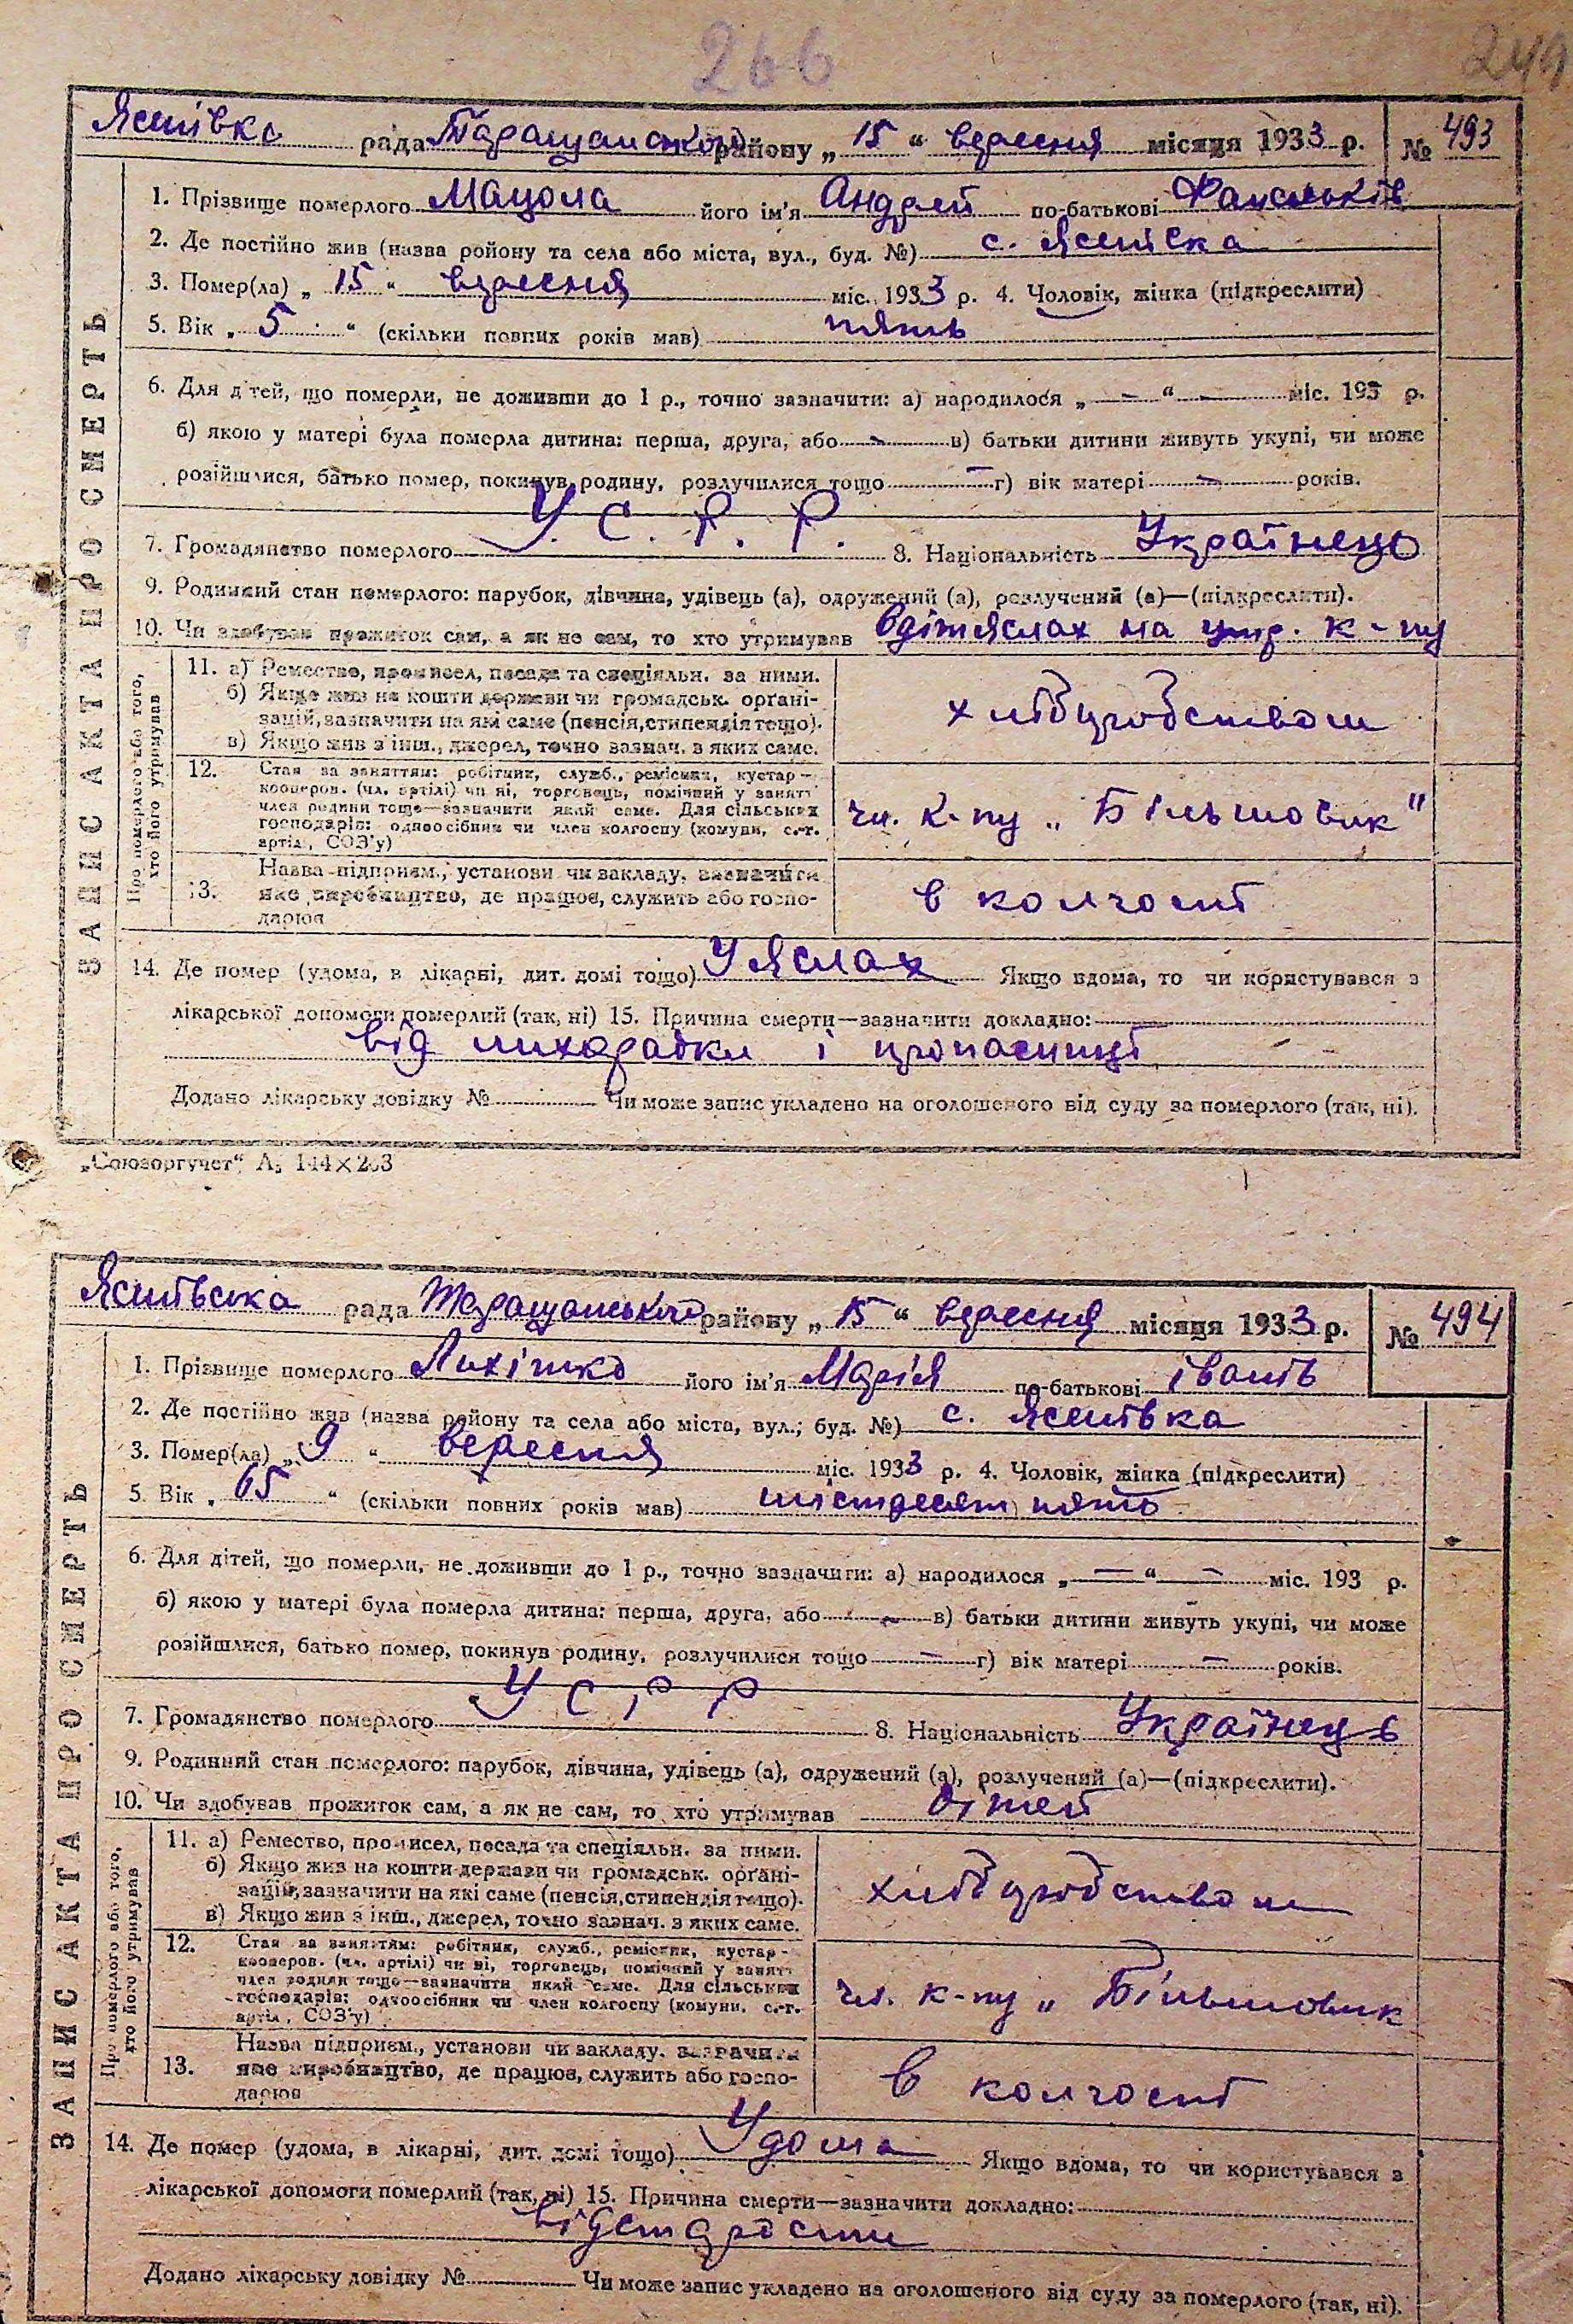 266
249
Яснівка рада Таращанського району „ 15 “ вересня місяця 1933 р. № 493
1. Прізвище померлого Мацола його ім'я Андрей по-батькові
2. Де постійно жив (назва ройону та села або міста, вул., буд. №) с. Яснівка
3. Помер(ла) „ 15 “ вересня міс. 1933 р. 4. Чоловік, жінка (підкреслити)
5. Вік „ 5 “ (скільки повних років мав) пять
6. Для дітей, що померли, не доживши до 1 р., точно зазначити: а) народилося „ — “ — міс. 193 р.
б) якою у матері була померла дитина: перша, друга, або — в) батьки дитини живуть укупі, чи може
розійшлися, батько помер, покинув родину, розлучилися тощо — г) вік матері — років.
7. Громадянство померлого У. С. Р. Р. 8. Національність Українець
9. Родинний стан померлого: парубок, дівчина, удівець (а), одружений (а), розлучений (а)—(підкреслити).
10. Чи здобував прожиток сам, а як не сам, то хто утримував в дітяслах на утр. к-пу
11. а) Ремество, промисел, посада та спеціяльн. за ними.
б) Якщо жив на кошти держави чи громадськ. орґані-
зацій, зазначити на які саме (пенсія, стипендія тощо).
в) Якщо жив з інш., джерел, точно зазнач. з яких саме.
хліборобством
12. Стан за заняттям: робітник, служб., ремісник, кустар-
кооперов. (чл. артілі) чи ні, торговець, помічний у занятт
член родини тощо—зазначити який саме. Для сільських
господарів: одноосібник чи член колгоспу (комуни, с.-г.
артіл., СОЗ'у)
чл. к-пу „Більшовик"
13. Назва підприєм., установи чи закладу, зазначити
яке виробництво, де працює, служить або госпо-
дарює
в колгоспі
14. Де помер (удома, в лікарні, дит. домі тощо) У яслах Якщо вдома, то чи користувався з
лікарської допомоги померлий (так, ні) 15. Причина смерти—зазначити докладно:
від лихорадки і пропасниці
Додано лікарську довідку № Чи може запис укладено на оголошеного від суду за померлого (так, ні).
ЗАПИС АКТА ПРО СМЕРТЬ
Про померлого або того,
хто його утримував
„Союзоргучет“ А5 144×203
Яснівська рада Таращанського району „ 15 “ вересня місяця 1933 р. № 494
1. Прізвище померлого його ім'я Марія по-батькові Іванів
2. Де постійно жив (назва ройону та села або міста, вул.; буд. №) с. Яснівка
3. Помер(ла) „ 9 “ вересня міс. 1933 р. 4. Чоловік, жінка (підкреслити)
5. Вік „ 65 “ (скільки повних років мав) шістдесят пять
6. Для дітей, що померли, не доживши до 1 р., точно зазначити: а) народилося „ — “ — міс. 193 р.
б) якою у матері була померла дитина: перша, друга, або — в) батьки дитини живуть укупі, чи може
розійшлися, батько помер, покинув родину, розлучилися тощо — г) вік матері — років.
7. Громадянство померлого У С Р Р 8. Національність Українець
9. Родинний стан померлого: парубок, дівчина, удівець (а), одружений (а), розлучений (а)—(підкреслити).
10. Чи здобував прожиток сам, а як не сам, то хто утримував дітей
11. а) Ремество, промисел, посада та спеціяльн. за ними.
б) Якщо жив на кошти держави чи громадськ. орґані-
зацій, зазначити на які саме (пенсія, стипендія тощо).
в) Якщо жив з інш., джерел, точно зазнач. з яких саме.
хліборобством
12. Стан за заняттям: робітник, служб., ремісник, кустар-
кооперов. (чл. артілі) чи ні, торговець, помічний у занятт
член родини тощо—зазначити який саме. Для сільських
господарів: одноосібник чи член колгоспу (комуни, с.-г.
артіл., СОЗ'у)
чл. к-пу „Більшовик
13. Назва підприєм., установи чи закладу. зазначити
яке виробництво, де працює, служить або госпо-
дарює
в колгоспі
14. Де помер (удома, в лікарні, дит. домі тощо) Удома Якщо вдома, то чи користувався з
лікарської допомоги померлий (так, ні) 15. Причина смерти—зазначити докладно:
від старости
Додано лікарську довідку № Чи може запис укладено на оголошеного від суду за померлого (так, ні).
ЗАПИС АКТА ПРО СМЕРТЬ
Про померлого або того,
хто його утримував